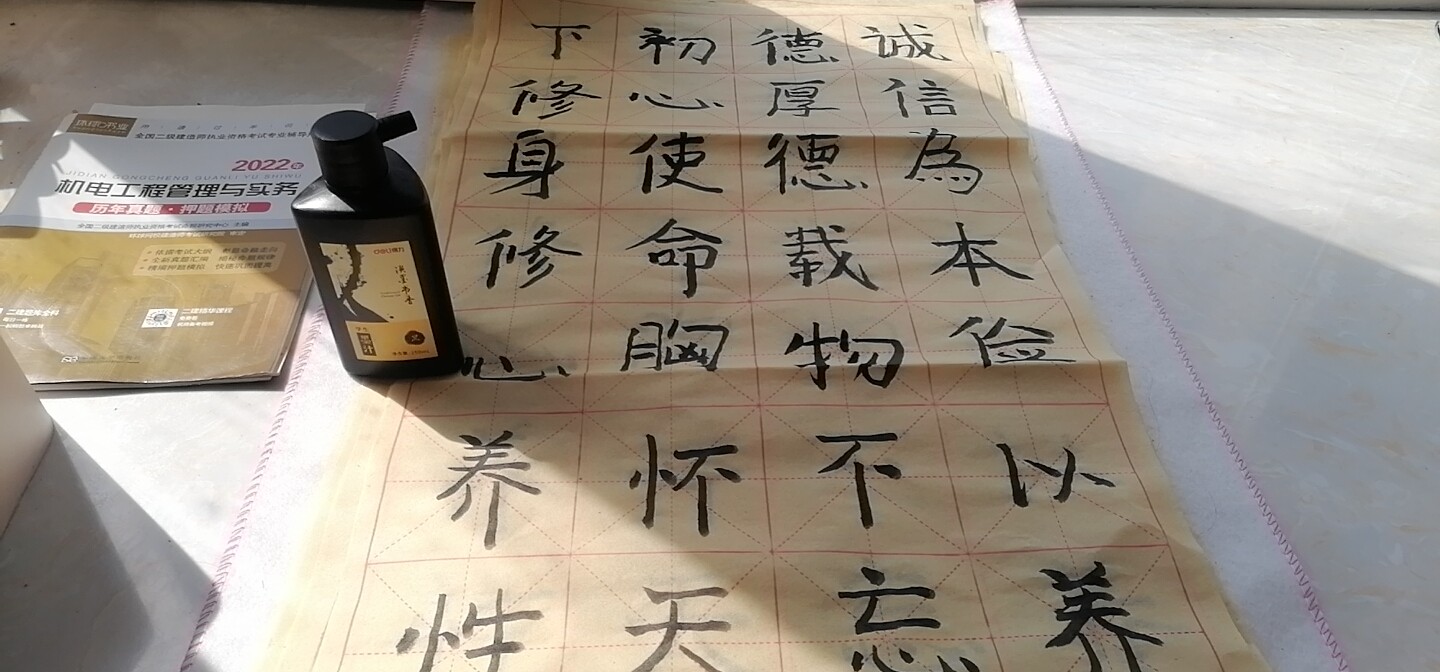 诚信為本俭以养
德厚德载物不忘
初心使命胸怀天
下修身修心养性
全国二级建造师执业资格考试专业辅导
2022年
JIDIAN GONGCHENG GUANLI YU SHIWU
机电工程管理与实务
历年真题·押题模拟
墨汁